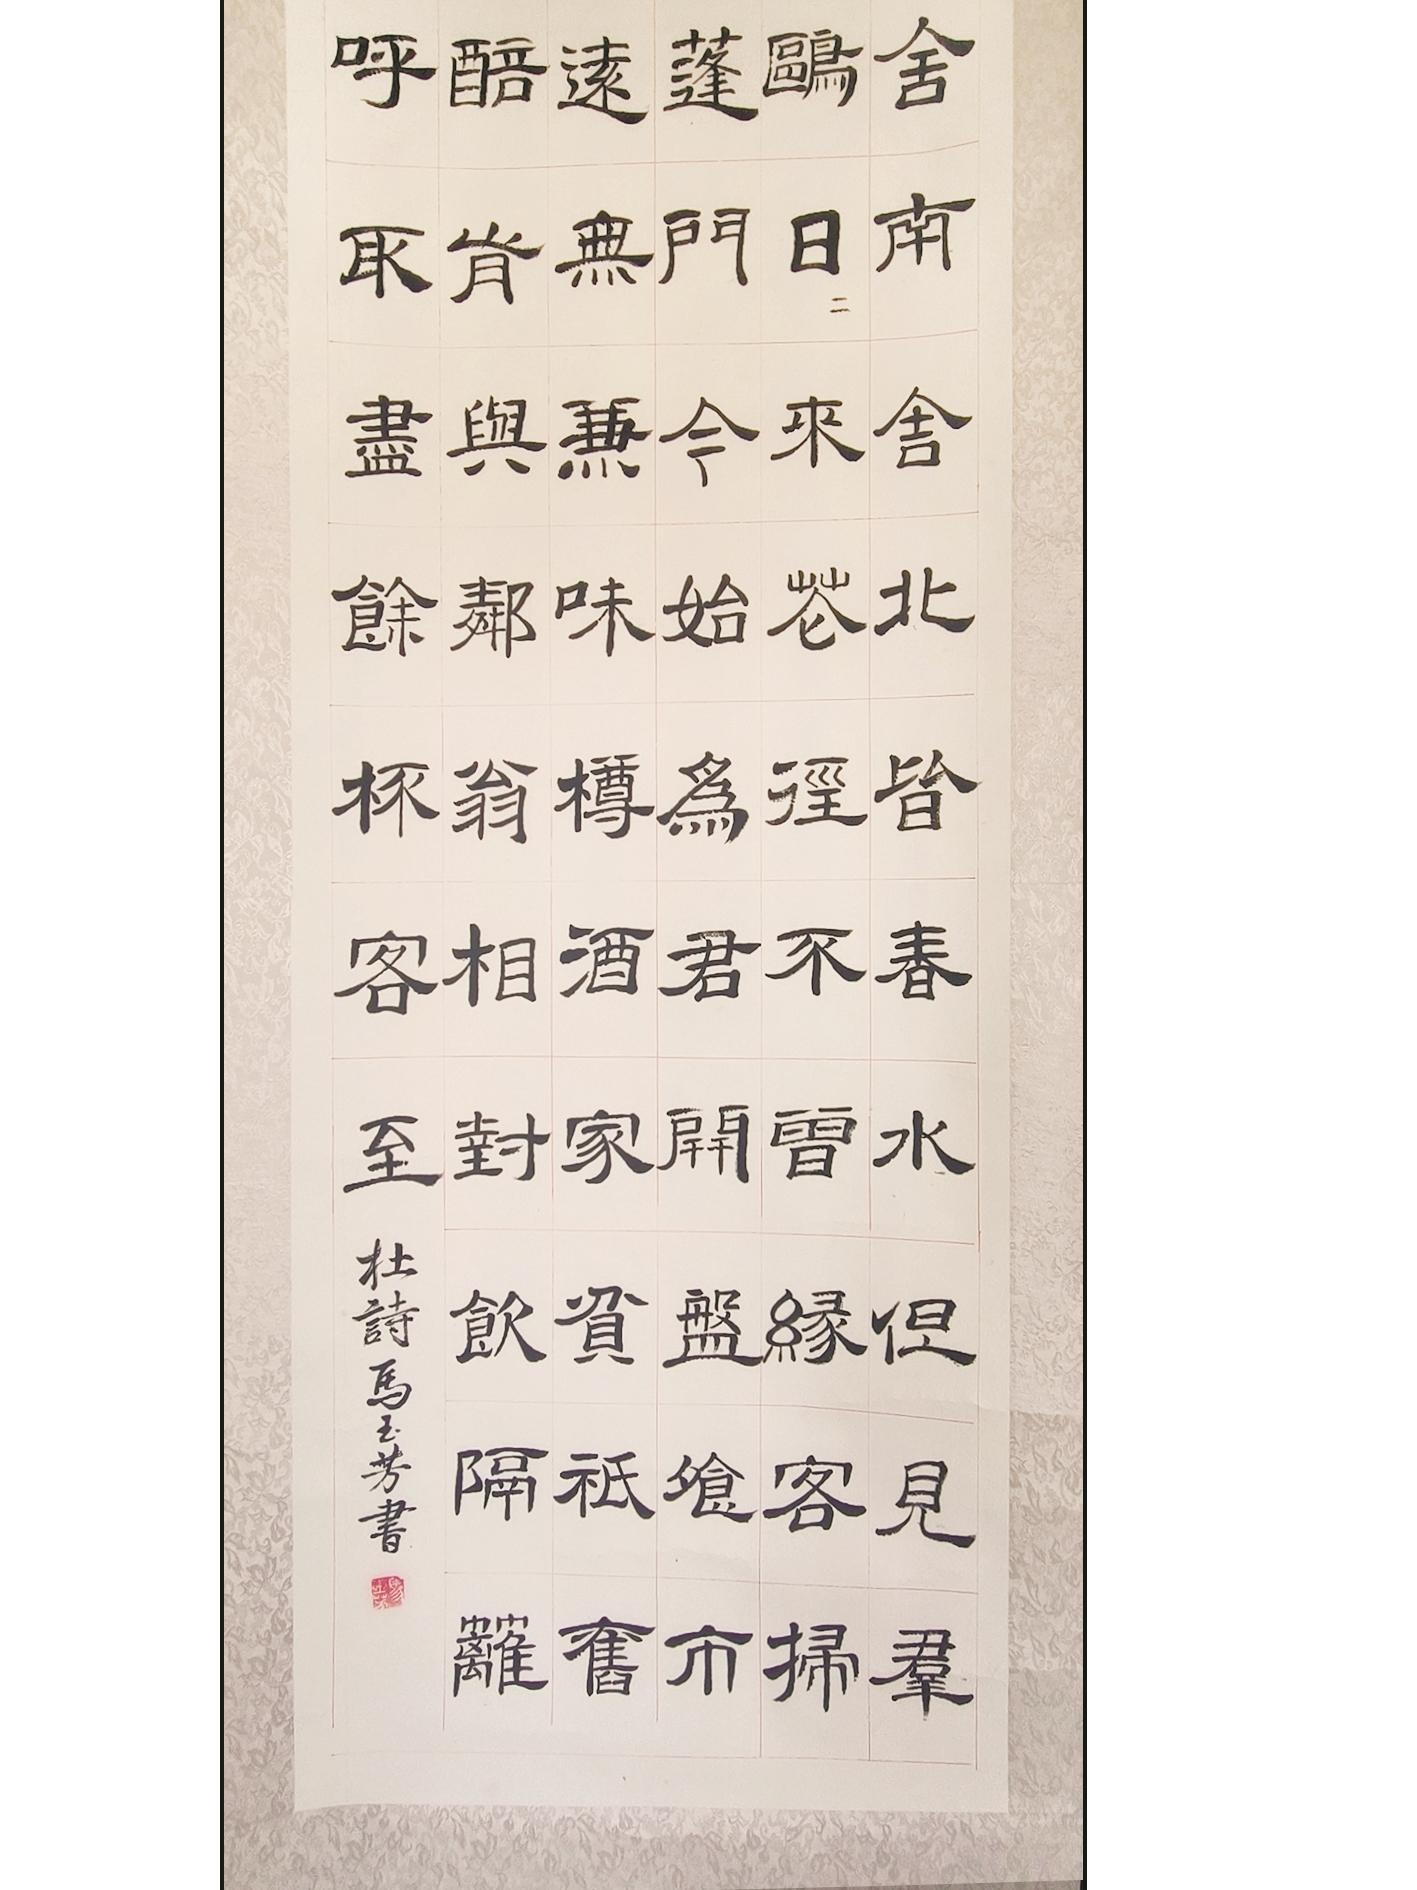 舍南舍北皆春水但見羣
鷗日二來花徑不曾緣客掃
蓬門今始為君開盤飧市
遠無兼味樽酒家貧祇舊
醅肯與鄰翁相對飲隔籬
呼取盡餘杯客至
杜詩馬玉芳書